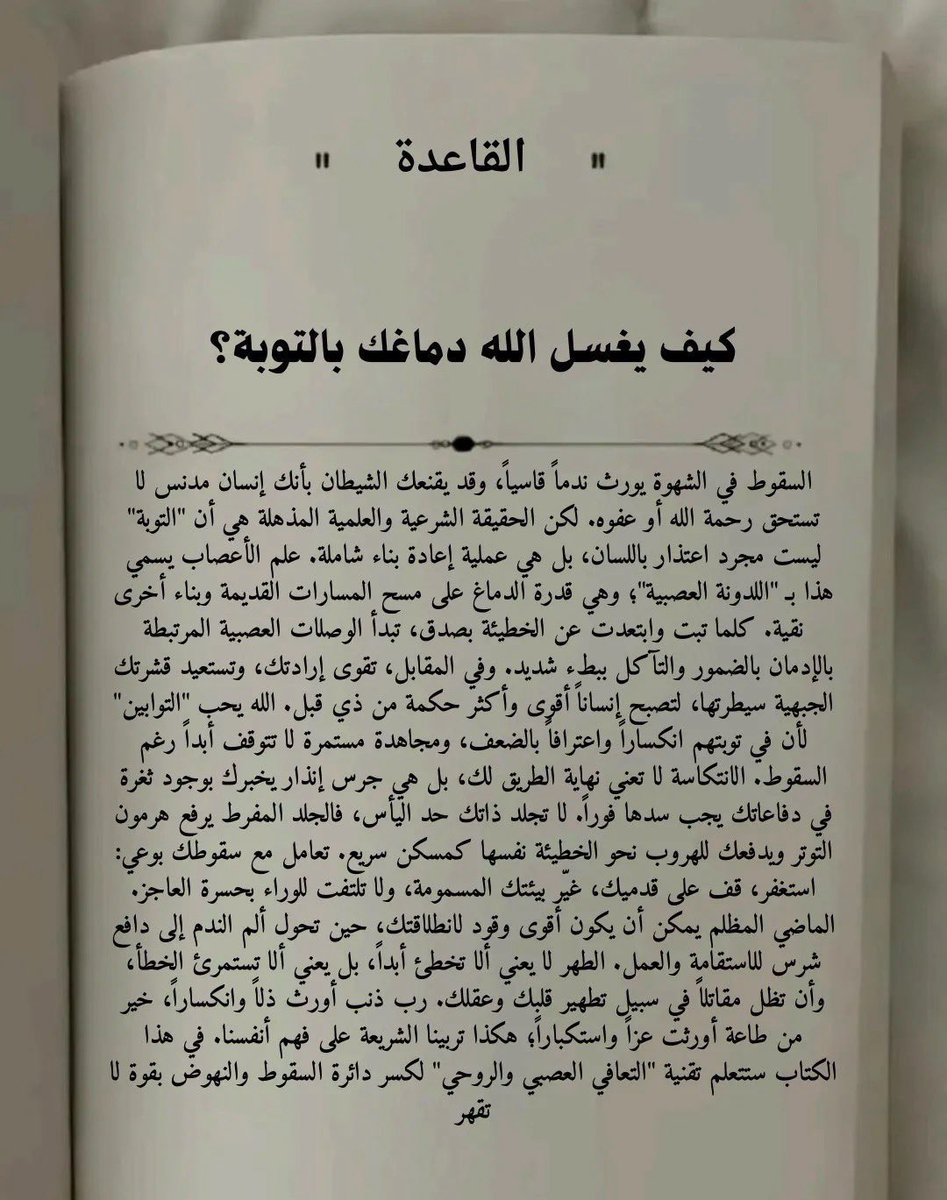 " القاعدة "
كيف يغسل الله دماغك بالتوبة؟
السقوط في الشهوة يورث ندماً قاسياً، وقد يقنعك الشيطان بأنك إنسان مدنس لا
تستحق رحمة الله أو عفوه. لكن الحقيقة الشرعية والعلمية المذهلة هي أن "التوبة"
ليست مجرد اعتذار باللسان، بل هي عملية إعادة بناء شاملة. علم الأعصاب يسمي
هذا بـ "اللدونة العصبية"؛ وهي قدرة الدماغ على مسح المسارات القديمة وبناء أخرى
نقية. كلما تبت وابتعدت عن الخطيئة بصدق، تبدأ الوصلات العصبية المرتبطة
بالإدمان بالضمور والتآكل ببطء شديد. وفي المقابل، تقوى إرادتك، وتستعيد قشرتك
الجبهية سيطرتها، لتصبح إنساناً أقوى وأكثر حكمة من ذي قبل. الله يحب "التوابين"
لأن في توبتهم انكساراً واعترافاً بالضعف، ومجاهدة مستمرة لا تتوقف أبداً رغم
السقوط. الانتكاسة لا تعني نهاية الطريق لك، بل هي جرس إنذار يخبرك بوجود ثغرة
في دفاعاتك يجب سدها فوراً. لا تجلد ذاتك حد اليأس، فالجلد المفرط يرفع هرمون
التوتر ويدفعك للهروب نحو الخطيئة نفسها كمسكن سريع. تعامل مع سقوطك بوعي:
استغفر، قف على قدميك، غيّر بيئتك المسمومة، ولا تلتفت للوراء بحسرة العاجز.
الماضي المظلم يمكن أن يكون أقوى وقود لانطلاقتك، حين تحول ألم الندم إلى دافع
شرس للاستقامة والعمل. الطهر لا يعني ألا تخطئ أبداً، بل يعني ألا تستمرئ الخطأ،
وأن تظل مقاتلاً في سبيل تطهير قلبك وعقلك. رب ذنب أورث ذلاً وانكساراً، خير
من طاعة أورثت عزاً واستكباراً؛ هكذا تربينا الشريعة على فهم أنفسنا. في هذا
الكتاب ستتعلم تقنية "التعافي العصبي والروحي" لكسر دائرة السقوط والنهوض بقوة لا
تقهر